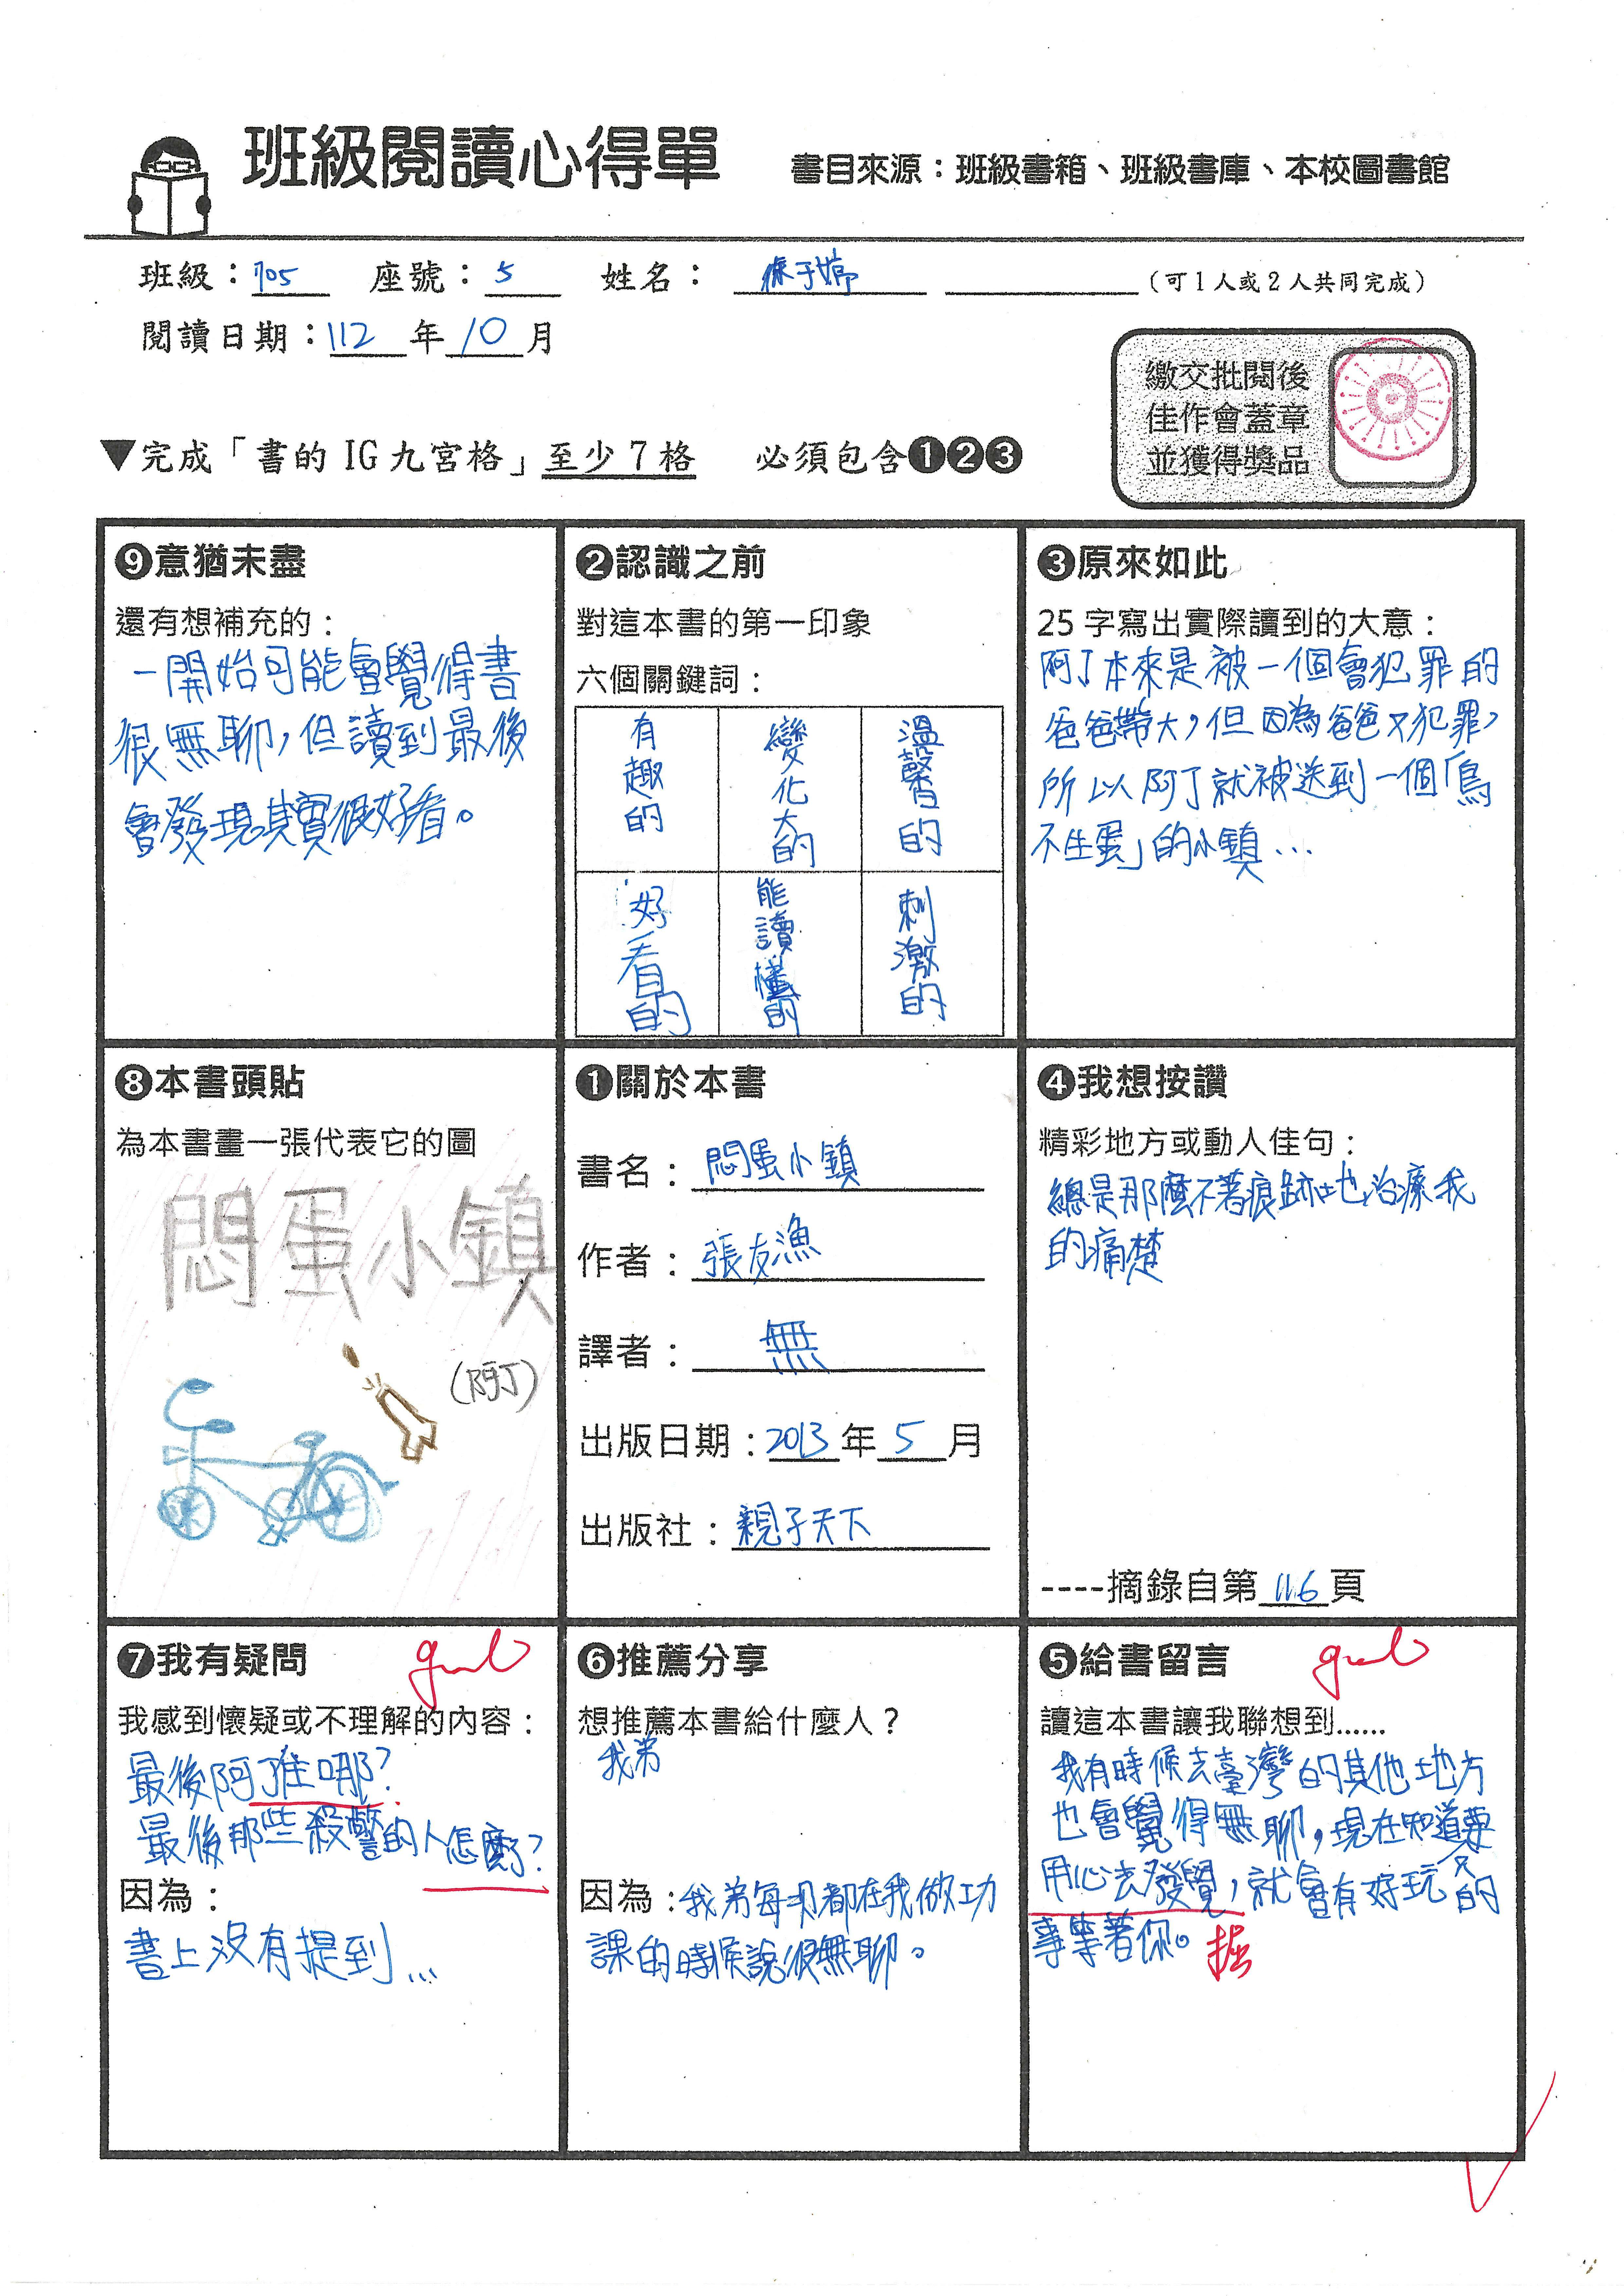 班級閱讀心得單
書目來源：班級書箱、班級書庫、本校圖書館
班級：705 座號：5 姓名： 子婷 （可1人或2人共同完成）
閱讀日期：112年10月
繳交批閱後
佳作會蓋章
並獲得獎品
▼完成「書的IG九宮格」至少7格 必須包含❶❷❸
❾意猶未盡
還有想補充的：
一開始可能會覺得書
很無聊，但讀到最後
會發現其實很好看。
❷認識之前
對這本書的第一印象
六個關鍵詞：
有趣的
變化大的
溫馨的
好看的
能讀懂的
刺激的
❸原來如此
25字寫出實際讀到的大意：
阿丁本來是被一個會犯罪的
爸爸帶大，但因為爸爸又犯罪，
所以阿丁就被送到一個「鳥
不生蛋」的小鎮…
❽本書頭貼
為本書畫一張代表它的圖
悶蛋小鎮
（阿丁）
❶關於本書
書名：悶蛋小鎮
作者：張友漁
譯者：無
出版日期：2013年5月
出版社：親子天下
❹我想按讚
精彩地方或動人佳句：
總是那麼不著痕跡地治療我
的痛楚
----摘錄自第116頁
❼我有疑問
good
我感到懷疑或不理解的內容：
最後阿 哪？
最後那些殺警的人怎麼了？
因為：
書上沒有提到…
❻推薦分享
想推薦本書給什麼人？
我弟
因為：我弟每次都在我做功
課的時候說很無聊。
❺給書留言
good
讀這本書讓我聯想到......
我有時候去臺灣的其他地方
也會覺得無聊，現在知道要
用心去發覺，就會有好玩的
事等著你。
掘